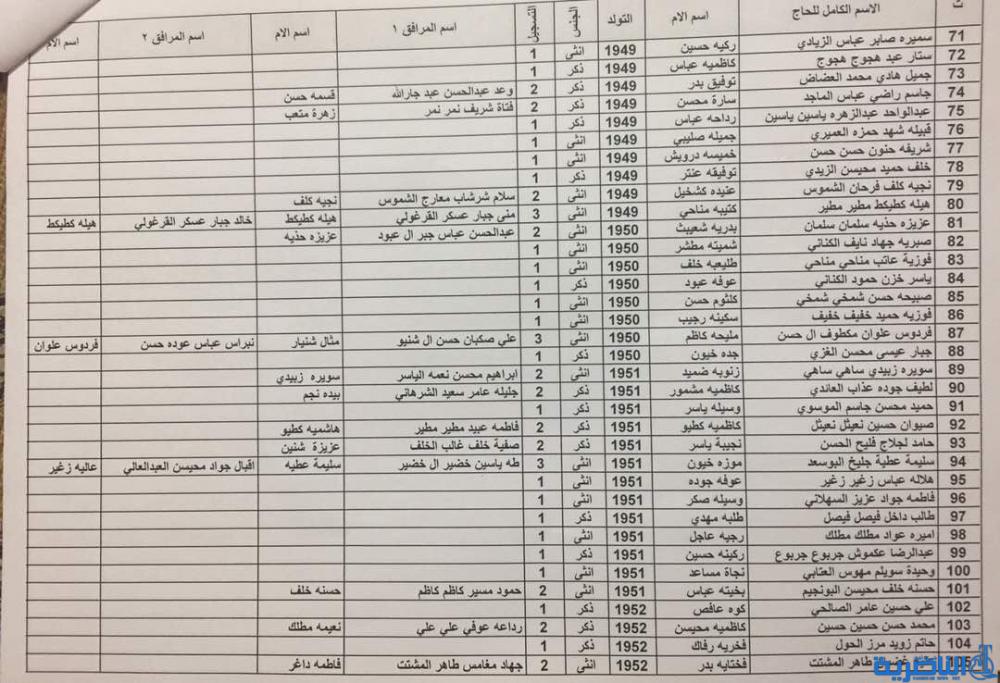 ت الاسم الكامل للحاج اسم الام التولد الجنس التسجيل اسم المرافق ١ اسم الام اسم المرافق ٢ اسم الام
71 سميره صابر عباس الزيادي ركيه حسين 1949 انثى 1
72 ستار عبد هجوج هجوج كاظميه عباس 1949 ذكر 1
73 جميل هادي محمد العضاض توفيق بدر 1949 ذكر 2 وعد عبدالحسن عبد جارالله قسمه حسن
74 جاسم راضي عباس الماجد سارة محسن 1949 ذكر 2 فتاة شريف نمر نمر زهرة متعب
75 عبدالواحد عبدالزهره ياسين ياسين رداحه عباس 1949 ذكر 1
76 قبيله شهد حمزه العميري جميله صليبي 1949 انثى 1
77 شريفه حنون حسن حسن خميسه درويش 1949 انثى 1
78 خلف حميد محيسن الزيدي توفيقه عنتر 1949 ذكر 1
79 نجيه كلف فرحان الشموس عنيده كشخيل 1949 انثى 2 سلام شرشاب معارج الشموس نجيه كلف
80 هيله كطيكط مطير مطير كتيبه مناحي 1949 انثى 3 منى جبار عسكر القرغولي هيله كطيكط خالد جبار عسكر القرغولي هيله كطيكط
81 عزيزه حذيه سلمان سلمان بدريه شعيبث 1950 انثى 2 عبدالحسن عباس جبر ال عبود عزيزه حذيه
82 صبريه جهاد نايف الكناني شميته مطشر 1950 انثى 1
83 فوزية عاتب مناحي مناحي طليعه خلف 1950 انثى 1
84 ياسر خزن حمود الكناني عوفه عبود 1950 ذكر 1
85 صبيحه حسن شمخي شمخي كلثوم حسن 1950 انثى 1
86 فوزيه حميد خفيف خفيف سكينه رجيب 1950 انثى 1
87 فردوس علوان مكطوف ال حسن مليحه كاظم 1950 انثى 3 علي صكبان حسن ال شنيو مثال شنيار نبراس عباس عوده حسن فردوس علوان
88 جبار عيسى محسن الغزي جده خيون 1950 ذكر 1
89 سويره زبيدي ساهي ساهي زنوبه ضميد 1951 انثى 2 ابراهيم محسن نعمه الياسر سويره زبيدي
90 لطيف جوده عذاب العاندي كاظميه مشمور 1951 ذكر 2 جليله عامر سعيد الشرهاني بيده نجم
91 حميد محسن جاسم الموسوي وسيله ياسر 1951 ذكر 1
92 صيوان حسين نعيثل نعيثل كاظميه كطيو 1951 ذكر 2 فاطمه عبيد مطير مطير هاشميه كطيو
93 حامد لجلاج فليح الحسن نجيبة ياسر 1951 ذكر 2 صفية خلف غالب الخلف عزيزة شنين
94 سليمة عطية جليخ البوسعد موزه خيون 1951 انثى 3 طه ياسين خضير ال خضير سليمة عطيه اقبال جواد محيسن العبدالعالي عاليه زغير
95 هلاله عباس زغير زغير عوفه جوده 1951 انثى 1
96 فاطمه جواد عزيز السهلاني وسيله صكر 1951 انثى 1
97 طالب داخل فيصل فيصل طلبه مهدي 1951 ذكر 1
98 اميره عواد مطلك مطلك رجيه عاجل 1951 انثى 1
99 عبدالرضا عكموش جربوع جربوع ركينه حسين 1951 ذكر 1
100 وحيدة سويلم مهوس العتابي نجاة مساعد 1951 انثى 1
101 حسنه خلف محيسن البونجيم بخيته عباس 1951 انثى 2 حمود مسير كاظم كاظم حسنه خلف
102 علي حسين عامر الصالحي كوه عافص 1952 ذكر 1
103 محمد حسن حسين حسين كاظميه محيسن 1952 ذكر 2 رداعه عوفي علي علي نعيمه مطلك
104 حاتم زويد مرز الحول فخريه رفاك 1952 ذكر 1
105 طاهر المشتت فختايه بدر 1952 انثى 2 جهاد مغامس طاهر المشتت فاطمه داغر
الناصرية